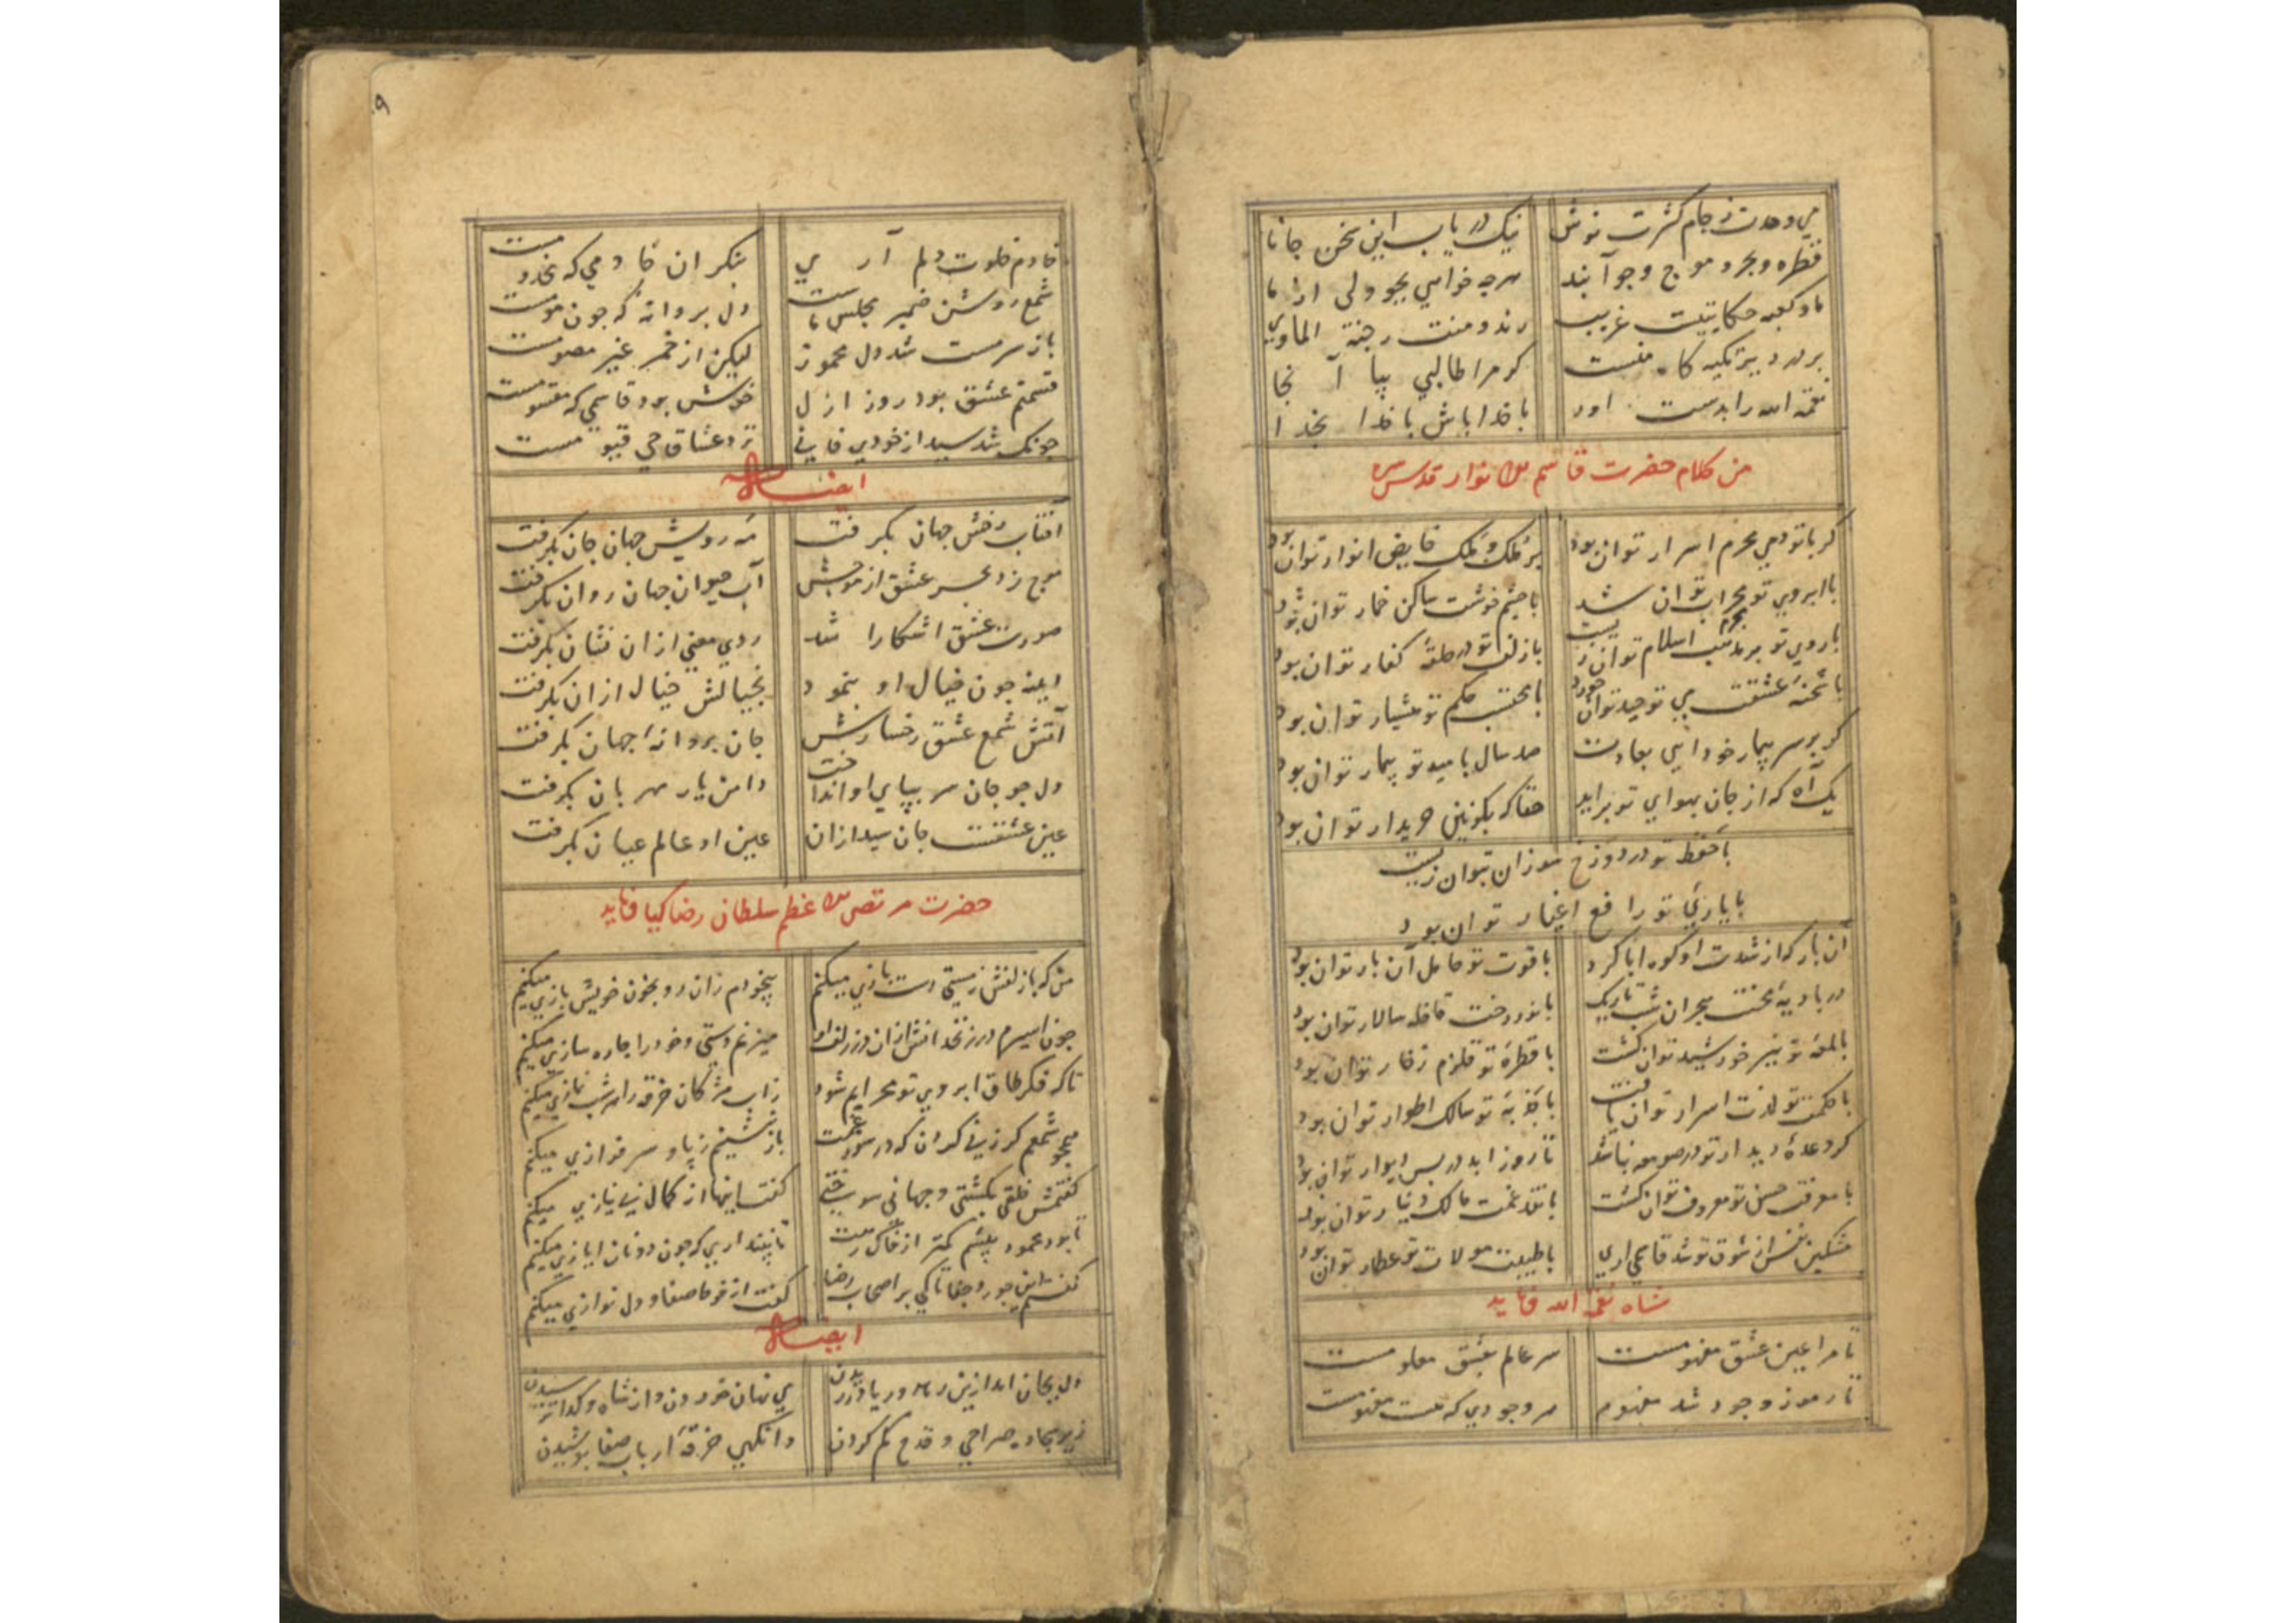 می وحدت ز جام کثرت نوش نیک دریاب این سخن جانا
قطره و بحر و موج و جو آبند هرچه خواهی بجو ولی از ما
ما و کعبه حکایتیست غریب رند و منت و جنة الماوی
بر در تکیه کاه منست کر مرا طالبی بیا آنجا
نعمة الله را بدست اور با خدا باش با خدا بخدا
من کلام حضرت قاسم الانوار قدس سره
کر با تو دمی محرم اسرار توان بود بر ملک و فلک فایض انوار توان بود
با ابروی تو محراب توان شد با چشم خوشت ساکن خمار توان بود
با روی تو بر مذهب اسلام توان زیست با زلف تو در حلقهٔ کفار توان بود
با شحنهٔ عشقت می توحید توان خورد با محتسب حکم تو هشیار توان بود
کر بر سر بیمار خود ایی بعیادت صد سال بامید تو بیمار توان بود
یک آه که از جان بهوای تو براید حقا که بکونین خریدار توان بود
با حفظ تو در دوزخ سوزان بتوان زیست
با یاری تو رافع اغیار توان بود
آن بار که از شدت او کوه ابا کرد با قوت تو حامل آن بار توان بود
در بادیهٔ محنت هجران شب تاریک با نور رخت قافله سالار توان بود
با لمعهٔ تو نیر خورشید توان کشت با قطرهٔ تو قلزم زخار توان بود
با حکمت تو لذت اسرار توان یافت با جذبهٔ تو سالک اطوار توان بود
کر وعدهٔ دیدار تو در صومعه باشد تا روز ابد در پس دیوار توان بود
با معرفت حسن تو معروف توان کشت با نقد غمت مالک دینار توان بود
مشکین نفس از شوق تو شد قاسمی اری با طیبت مولات تو عطار توان بود
شاه نعمة الله فرماید
تا مرا عین عشق مفهومست سر عالم بعشق معلومست
تا رموز وجود شد مفهوم هر وجودی که هست مفهومست
خادم خلوت دلم آری بنکر ان خادمی که مخدومست
شمع روشن ضمیر مجلس ماست دل پروانه که چون مومست
باز سرمست شد دل مخمور لیکن از خمر غیر معصومست
قسمتم عشق بود روز ازل خوش بود قاسمی که مقسومست
چونکه شد سید از خودی فانی نزد عشاق حی قیومست
ایضا له
افتاب رخش جهان بکرفت مه رویش جهان جان بکرفت
موج زد بحر عشق از موجش آب حیوان جهان روان بکرفت
صورت عشق اشکارا شد روی معنی ازان نشان بکرفت
اینه چون خیال او بنمود بخیالش خیال ازان بکرفت
آتش شمع عشق رخسارش جان پروانهٔ جهان بکرفت
دل چو جان سر بپای او انداخت دامن یار مهربان بکرفت
عین عشقست جان سید ازان عین او عالم عیان بکرفت
حضرت مرتضی الاعظم سلطان رضا کیا فرماید
من که با زلفش ز مستی دست بازی میکنم بیخودم زان رو بخون خویش بازی میکنم
چون اسیرم در زنخدانش ازان در زلف او میزنم دستی و خود را چاره سازی میکنم
تا که فکر طاق ابروی تو محرابم شود ز اب مژکان خرقه را هر شب نمازی میکنم
همچو شمعم کر زنی کردن که در سوز غمت باز ننشینم ز پا و سرفرازی میکنم
کفتمش خلقی بکشتی و جهانی سوختی کفت اینها از کمال بی نیازی میکنم
تا بود محمود پیشم کمتر از خاک رهت تا نپنداری که چون دونان ایازی میکنم
کفتم این جور و جفا تا کی بر اصحاب رضا کفت از فرط صفا و دل نوازی میکنم
ایضا له
دل بجان امد ازین زهد و ریا ورزیدن می نهان خوردن و از شاه و کدا ترسیدن
زیر سجاده صراحی و قدح کم کردن وانکهی خرقهٔ ارباب صفا پوشیدن